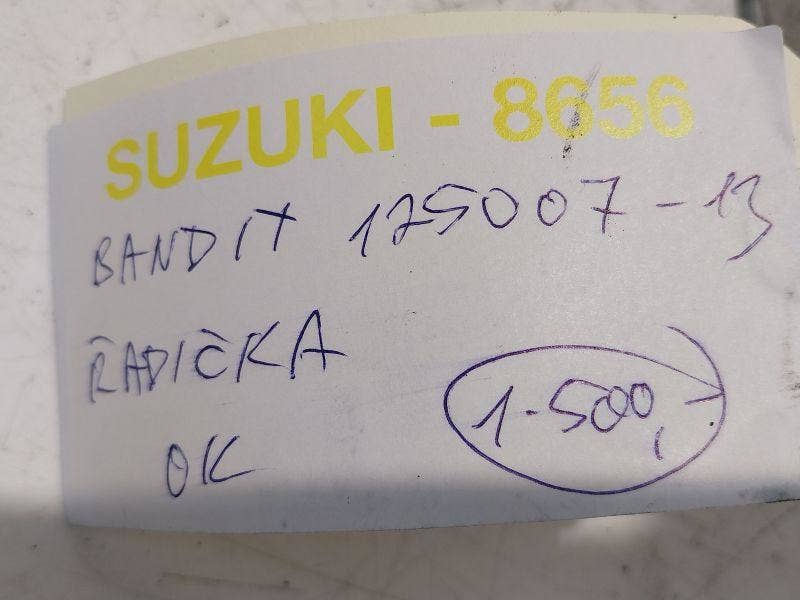 SUZUKI - 8656
BANDIT 125007-13
ŘADIČKA
OK
1.500,-